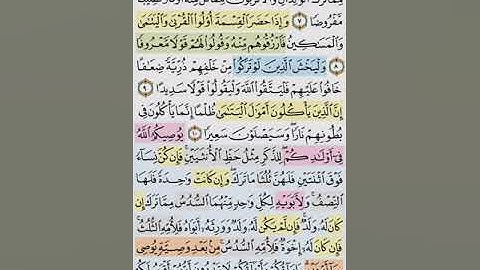 مَّفْرُوضًا ٧ وَإِذَا حَضَرَ ٱلْقِسْمَةَ أُو۟لُوا۟ ٱلْقُرْبَىٰ وَٱلْيَتَٰمَىٰ
وَٱلْمَسَٰكِينُ فَٱرْزُقُوهُم مِّنْهُ وَقُولُوا۟ لَهُمْ قَوْلًا مَّعْرُوفًا
٨ وَلْيَخْشَ ٱلَّذِينَ لَوْ تَرَكُوا۟ مِنْ خَلْفِهِمْ ذُرِّيَّةً ضِعَٰفًا
خَافُوا۟ عَلَيْهِمْ فَلْيَتَّقُوا۟ ٱللَّهَ وَلْيَقُولُوا۟ قَوْلًا سَدِيدًا ٩
إِنَّ ٱلَّذِينَ يَأْكُلُونَ أَمْوَٰلَ ٱلْيَتَٰمَىٰ ظُلْمًا إِنَّمَا يَأْكُلُونَ فِى
بُطُونِهِمْ نَارًا وَسَيَصْلَوْنَ سَعِيرًا ١٠ يُوصِيكُمُ ٱللَّهُ
فِىٓ أَوْلَٰدِكُمْ لِلذَّكَرِ مِثْلُ حَظِّ ٱلْأُنثَيَيْنِ فَإِن كُنَّ نِسَآءً
فَوْقَ ٱثْنَتَيْنِ فَلَهُنَّ ثُلُثَا مَا تَرَكَ وَإِن كَانَتْ وَٰحِدَةً فَلَهَا
ٱلنِّصْفُ وَلِأَبَوَيْهِ لِكُلِّ وَٰحِدٍ مِّنْهُمَا ٱلسُّدُسُ مِمَّا تَرَكَ إِن
كَانَ لَهُۥ وَلَدٌ فَإِن لَّمْ يَكُن لَّهُۥ وَلَدٌ وَوَرِثَهُۥٓ أَبَوَاهُ فَلِأُمِّهِ ٱلثُّلُثُ
فَإِن كَانَ لَهُۥٓ إِخْوَةٌ فَلِأُمِّهِ ٱلسُّدُسُ مِنۢ بَعْدِ وَصِيَّةٍ يُوصِى